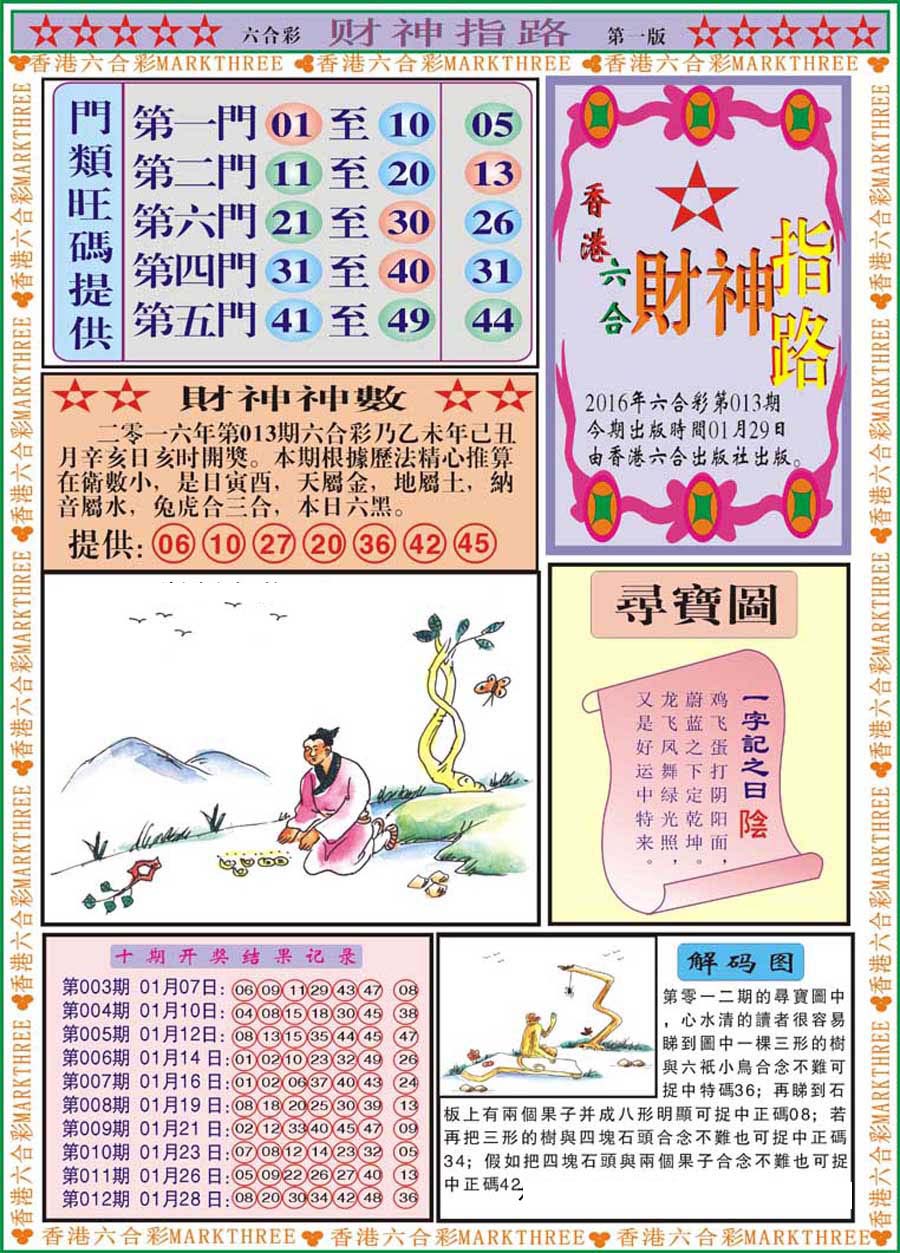 六合彩 财神指路 第一版
香港六合彩MARKTHREE 香港六合彩MARKTHREE 香港六合彩MARKTHREE
門類旺碼提供
第一門 01 至 10 05
第二門 11 至 20 13
第六門 21 至 30 26
第四門 31 至 40 31
第五門 41 至 49 44
香港六合
財神指路
2016年六合彩第013期
今期出版時間01月29日
由香港六合出版社出版。
財神神數
二零一六年第013期六合彩乃乙未年己丑
月辛亥日亥时開獎。本期根據歷法精心推算
在衛數小，是日寅酉，天屬金，地屬土，納
音屬水，兔虎合三合，本日六黑。
提供: 06 10 27 20 36 42 45
尋寶圖
一字記之曰 陰
鸡飞蛋打阴阳面，
蔚蓝之下定乾坤。
龙飞风舞绿光照，
又是好运中特来。
十期开奖结果记录
第003期 01月07日: 06 09 11 29 43 47 08
第004期 01月10日: 04 08 15 18 30 45 38
第005期 01月12日: 08 13 15 35 44 45 47
第006期 01月14日: 01 02 10 23 32 49 26
第007期 01月16日: 01 02 06 37 40 43 24
第008期 01月19日: 08 18 20 25 30 39 13
第009期 01月21日: 02 12 33 40 45 47 09
第010期 01月23日: 07 08 12 14 23 32 05
第011期 01月26日: 05 09 22 26 27 40 13
第012期 01月28日: 08 20 30 34 42 48 36
解码图
第零一二期的尋寶圖中
，心水清的讀者很容易
睇到圖中一棵三形的樹
與六祇小鳥合念不難可
捉中特碼36；再睇到石
板上有兩個果子并成八形明顯可捉中正碼08；若
再把三形的樹與四塊石頭合念不難也可捉中正碼
34；假如把四塊石頭與兩個果子合念不難也可捉
中正碼42
香港六合彩MARKTHREE 香港六合彩MARKTHREE 香港六合彩MARKTHREE
香港六合彩MARKTHREE 香港六合彩MARKTHREE 香港六合彩MARKTHREE 香港六合彩MARKTHREE 香港六合彩MARKTHREE
香港六合彩MARKTHREE 香港六合彩MARKTHREE 香港六合彩MARKTHREE 香港六合彩MARKTHREE 香港六合彩MARKTHREE